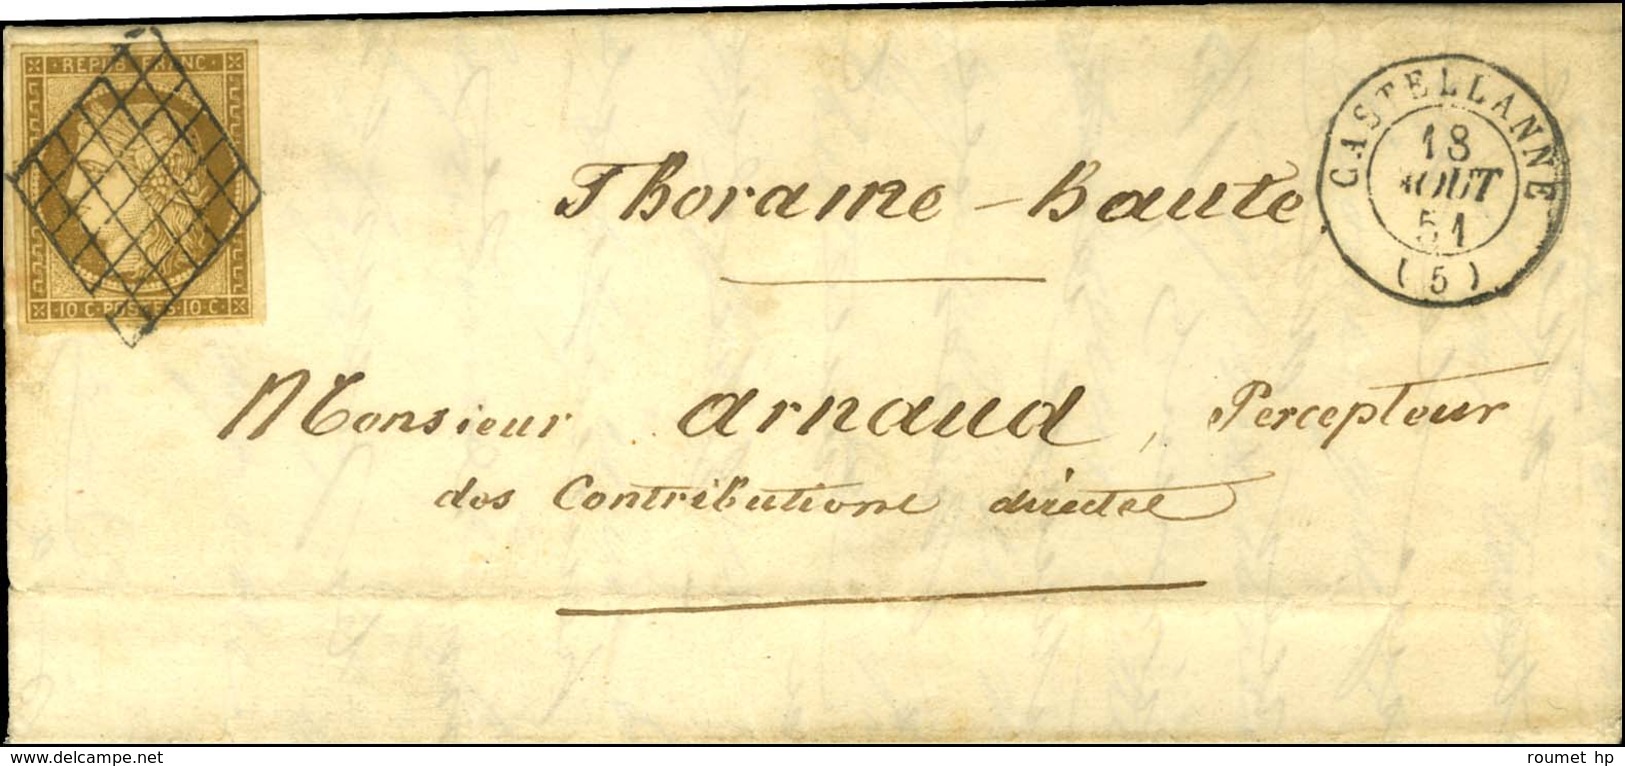 REPUB FRANC
10·C·POSTES·10·C
CASTELLANNE
18
AOUT
51
(5)
Thorame-haute
Monsieur arnaud, Percepteur
des Contributions directes
www.delcampe.net
roumet hp